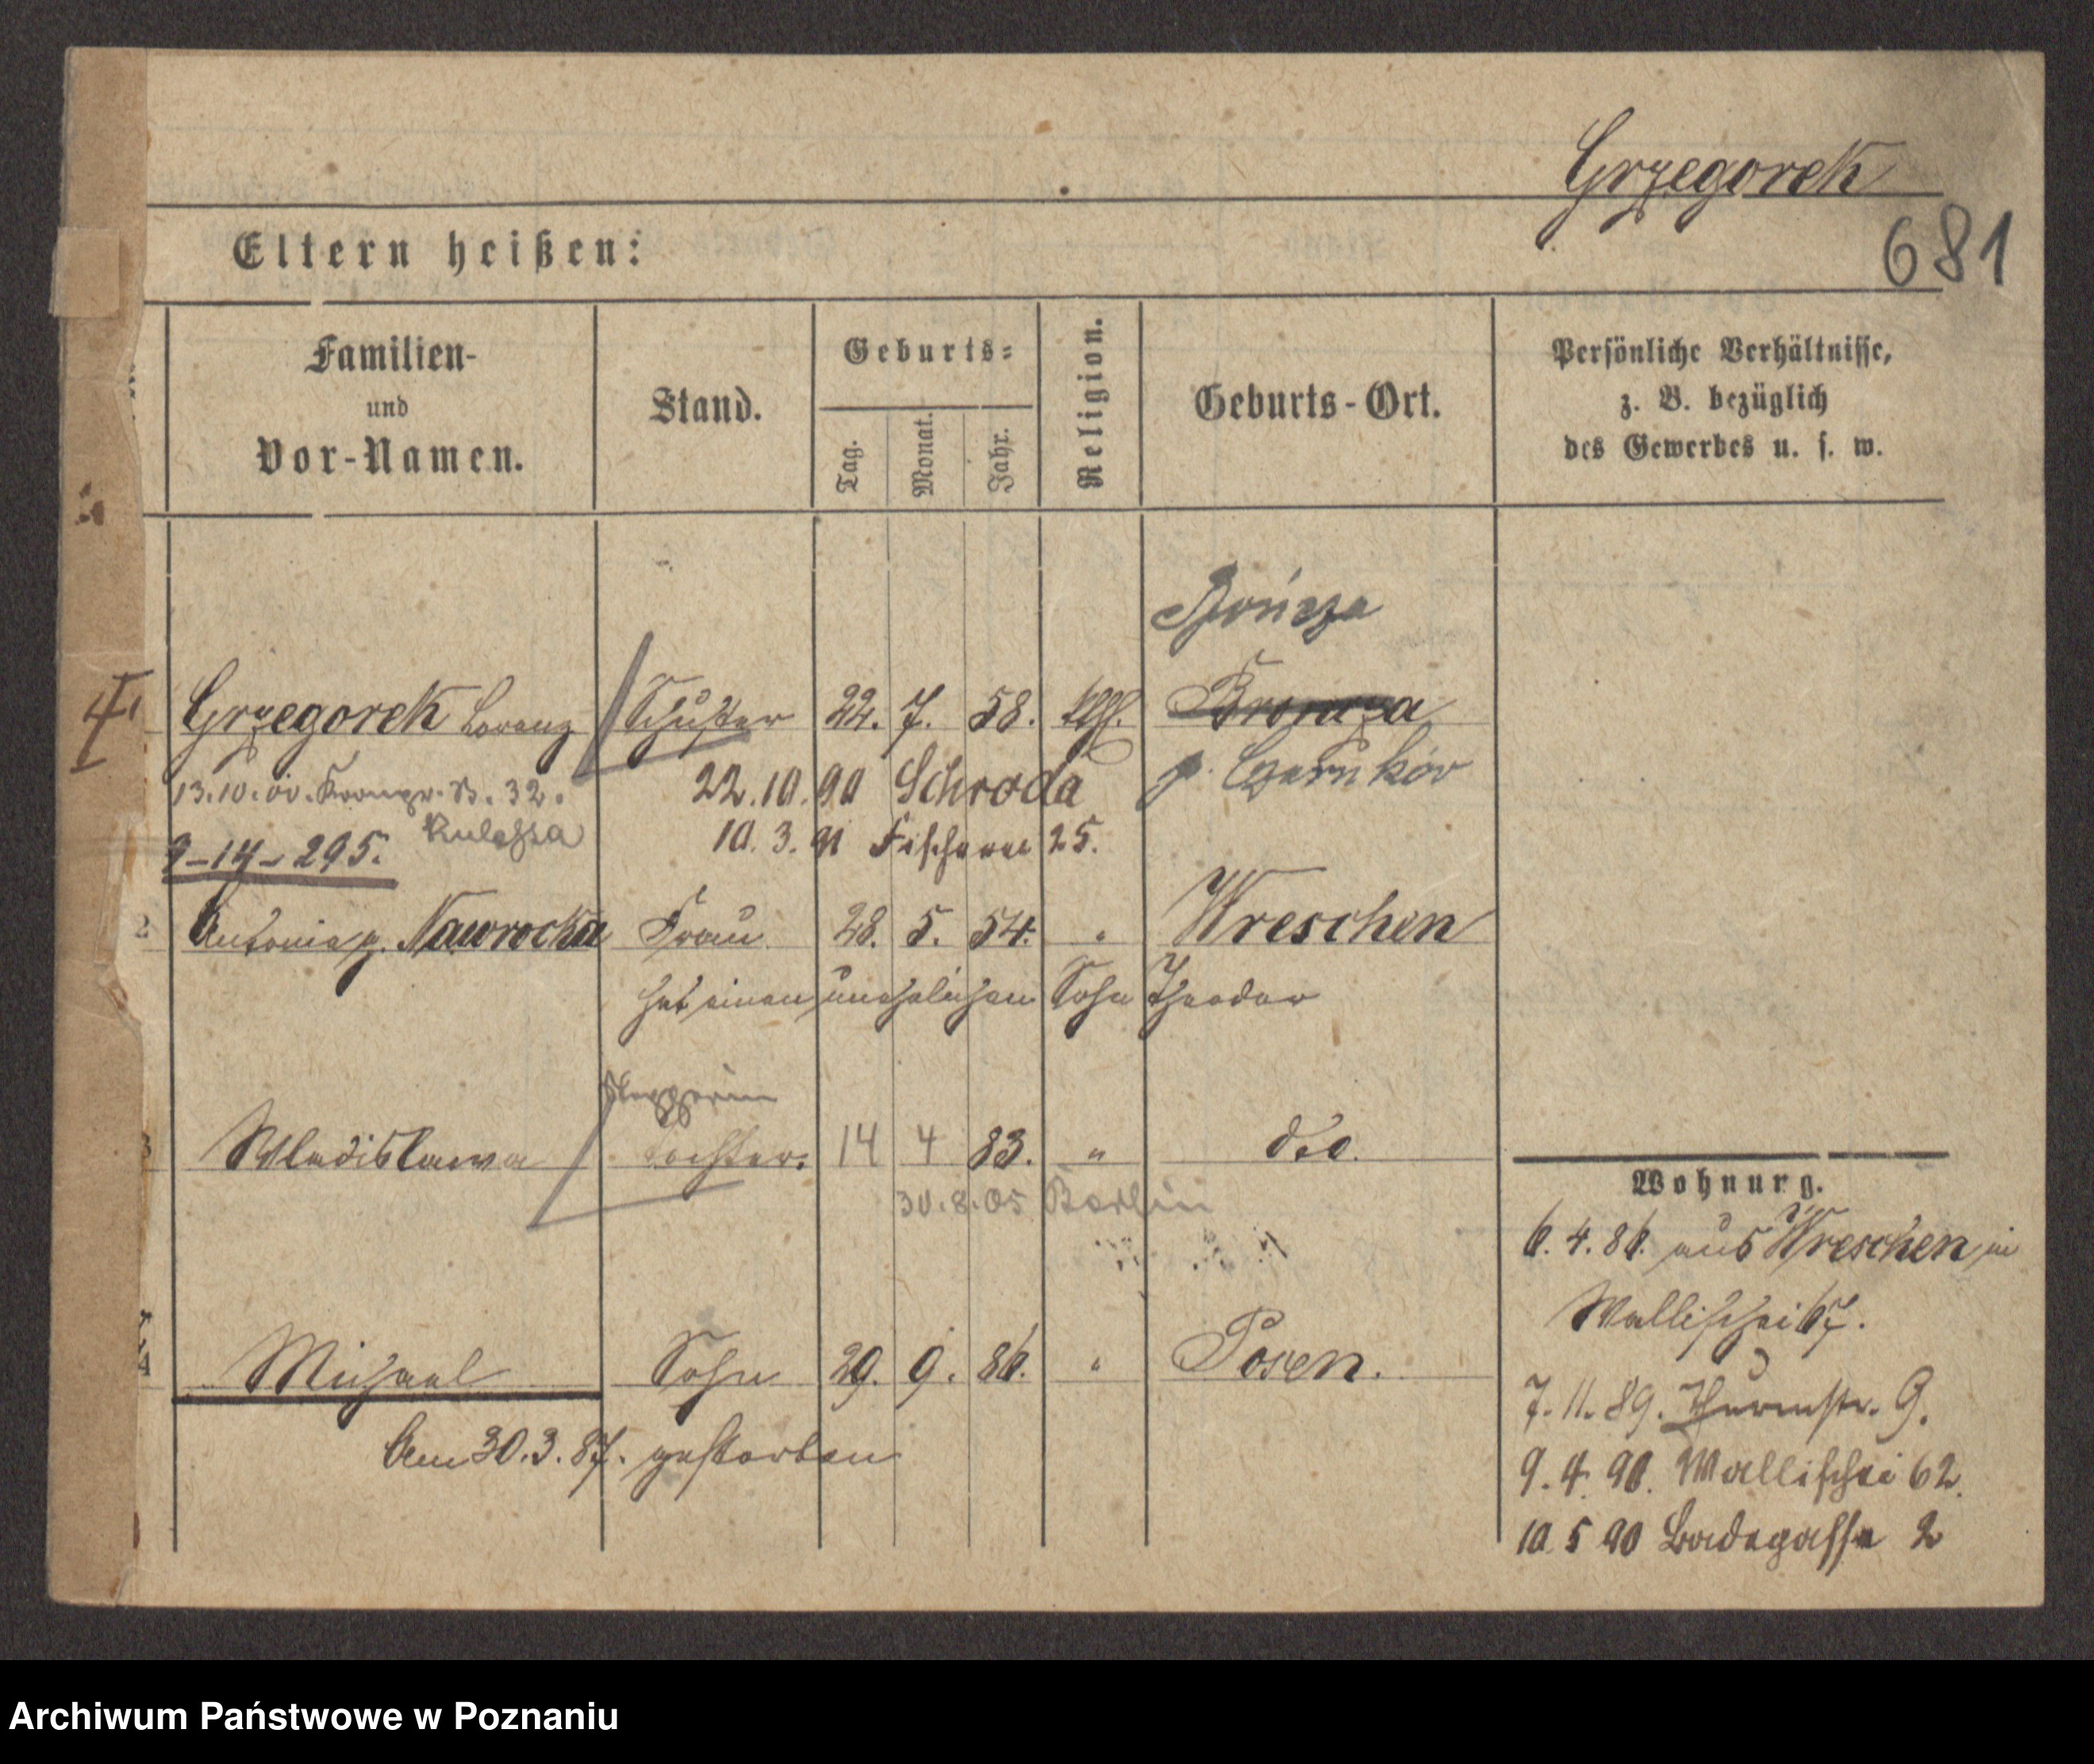 Grzegorek
681
Eltern heißen:
Familien-
und
Vor-Namen.
Stand.
Geburts-
Tag.
Monat.
Jahr.
Religion.
Geburts-Ort.
Persönliche Verhältnisse,
z. B. bezüglich
des Gewerbes u. s. w.
Grzegorek Lorenz Schuster 22. 7. 58. kthl.
p. Czarnków
13.10.00. B. 32.
22.10.90 Schroda
10.3.91 Fischerei 25.
9-14-295.
2 Antonia g. Nawrocka Frau 28. 5. 54. " Wreschen
hat einen unehelichen Sohn Theodor
3 Wladislawa Tochter. 14 4 83. " dto.
30.8.05 Berlin
Michael Sohn 29. 9. 86. " Posen.
Am 30.3.87. gestorben
Wohnung.
6.4.86. aus Wreschen in
Wallischei 67.
7.11.89. Thurmstr. 9.
9.4.90. Wallischei 62.
10 5 90 Badegasse 2
Archiwum Państwowe w Poznaniu